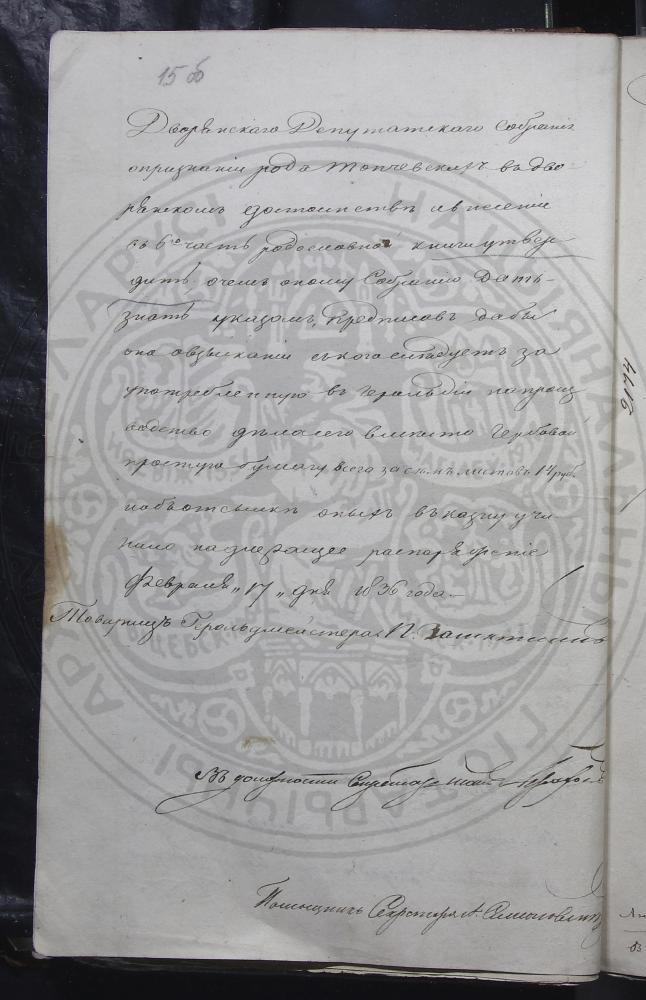 15 об
Дворянскаго Депутатскаго Собранія
о признаніи рода Топчевскихъ въ дво-
рянскомъ достоинствѣ и внесеніи
въ 6ю часть родословной книги утвер-
дить, о чемъ оному Собранію дать
знать указомъ, предписавъ дабы
оно о взысканіи съ кого слѣдуетъ за
употребленную въ Герольдіи на произ
водство дѣла сего вмѣсто гербовой
простую бумагу всего за семь листовъ 14 руб.
и объ отсылкѣ оныхъ въ казну учи-
нило надлежащее распоряженіе
Февраля „17„ дня 1836 года.
Товарищъ Герольдмейстера П.
Въ должности Секретаря
Помощникъ Секретаря А.